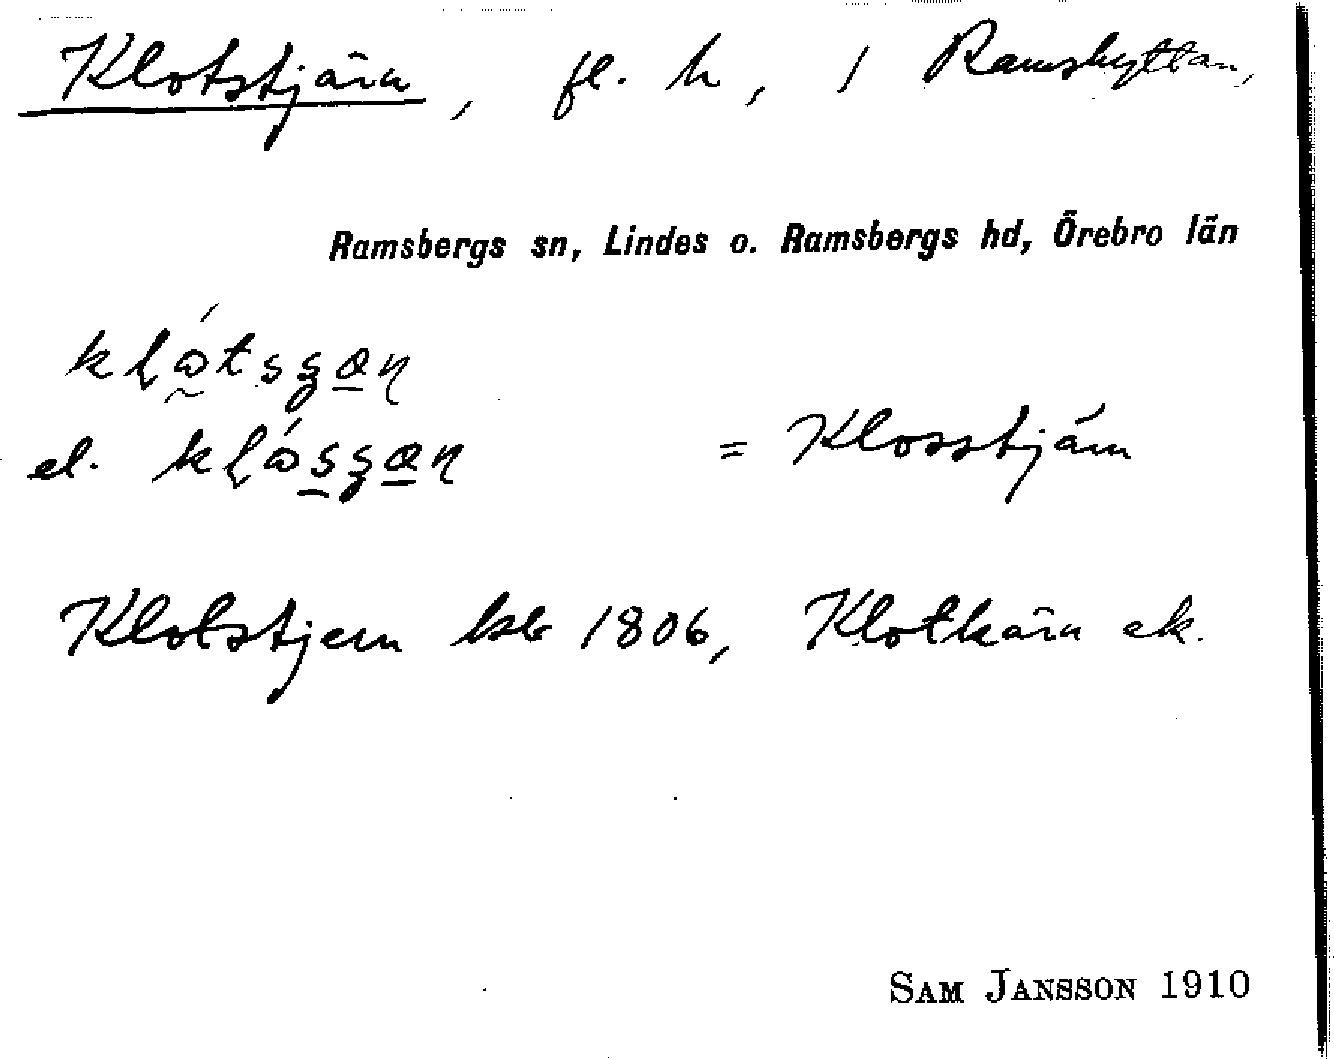 Klotstjärn, fl. h, / Ramshyttan,
Ramsbergs sn, Lindes o. Ramsbergs hd, Örebro län
el. = Klosstjärn
Klotstjern ksb 1806, Klotkärn ek.
SAM JANSSON 1910